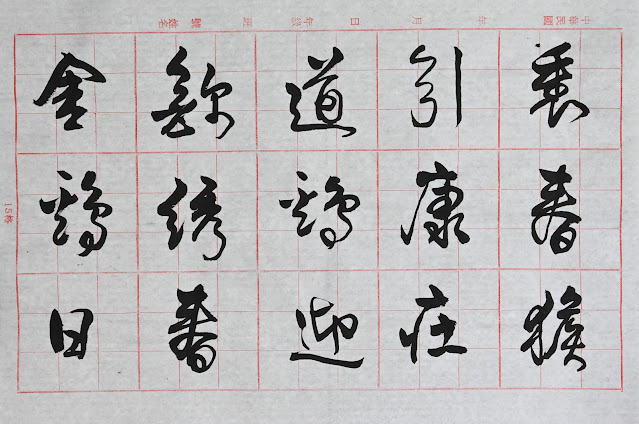 中華民國 年 月 日 年級 班 號 姓名
春猴
引康庄
道鷄迎
綉春
金鷄日
15格